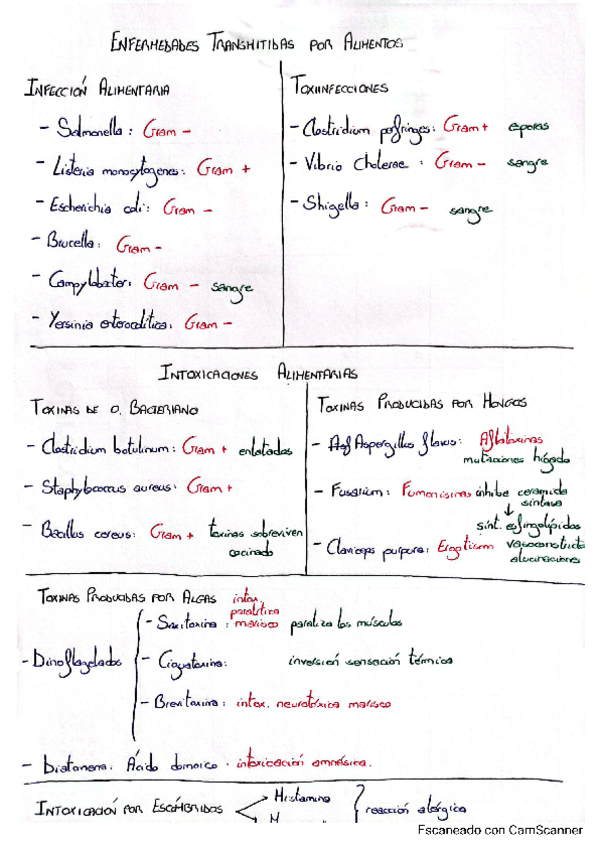 ENFERMEDADES TRANSMITIDAS POR ALIMENTOS
INFECCIÓN ALIMENTARIA
- Salmonella: Gram -
- Listeria monocytogenes: Gram +
- Escherichia coli: Gram -
- Brucella: Gram -
- Campylobacter: Gram - sangre
- Yersinia enterocolítica: Gram -
TOXIINFECCIONES
- Clostridium perfringes: Gram + eporas
- Vibrio Cholerae: Gram - sangre
- Shigella: Gram - sangre
INTOXICACIONES ALIMENTARIAS
TOXINAS DE O. BACTERIANO
- Clostridium botulinum: Gram + enlatados
- Staphylococcus aureus: Gram +
- Bacillus cereus: Gram + toxinas sobreviven
cocinado
TOXINAS PRODUCIDAS POR HONGOS
- Aspergillus flavus: Aflatoxinas
mutaciones hígado
- Fusarium: Fumonisinas inhibe ceramida
sintasa
↓
sínt. esfingolípidos
- Claviceps purpura: Ergotismo vasoconstricta
alucinaciones
TOXINAS PRODUCIDAS POR ALGAS intox.
paralítica
- Dinoflagelados
- Saxitoxina: marisco paraliza los músculos
- Ciguatoxina: inversión sensación térmica
- Brevitoxina: intox. neurotóxica marisco
- Diatomena. Ácido domoico. intoxicación amnésica.
INTOXICACIÓN POR ESCÓMBRIDOS
Histamina
reacción alérgica
Escaneado con CamScanner